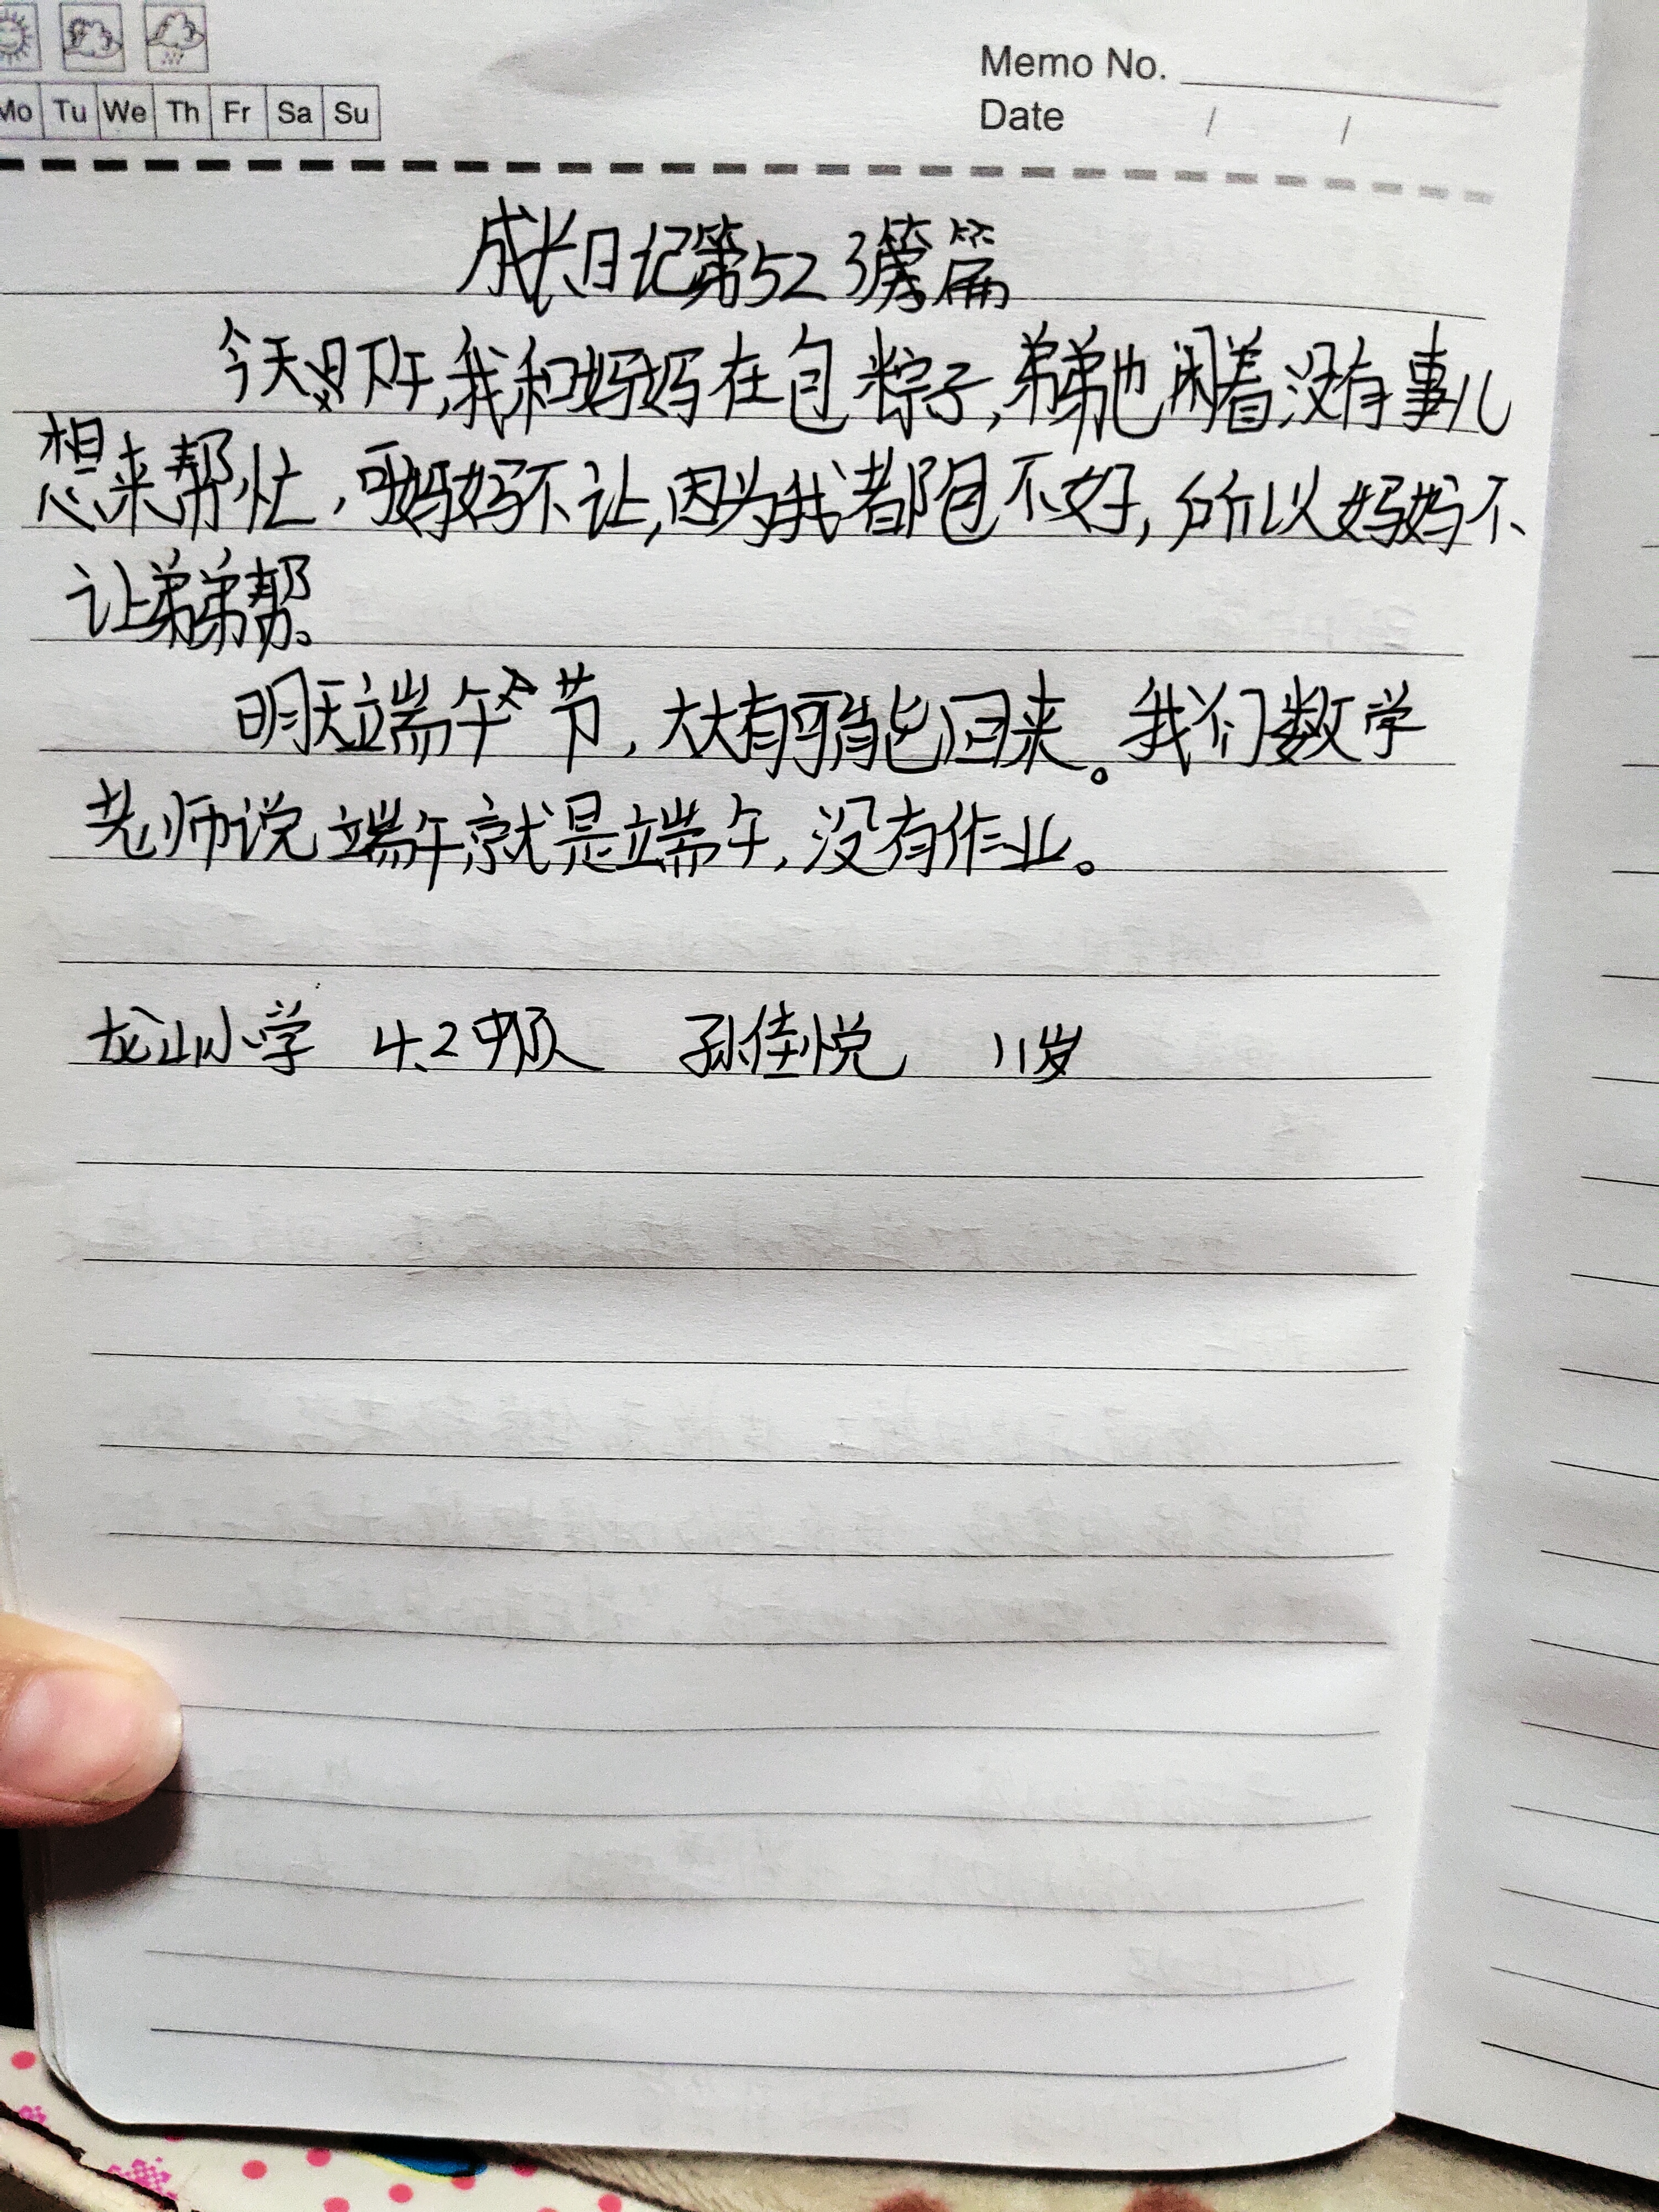 Memo No.
Mo Tu We Th Fr Sa Su
Date / /
成长日记第523篇
今天下午,我和妈妈在包粽子,弟弟也闲着没有事儿
想来帮忙,可妈妈不让,因为我都包不好,所以妈妈不
让弟弟帮。
明天端午节,大大有可能回来。我们数学
老师说端午就是端午,没有作业。
龙山小学 4.2中队 孙佳悦 11岁